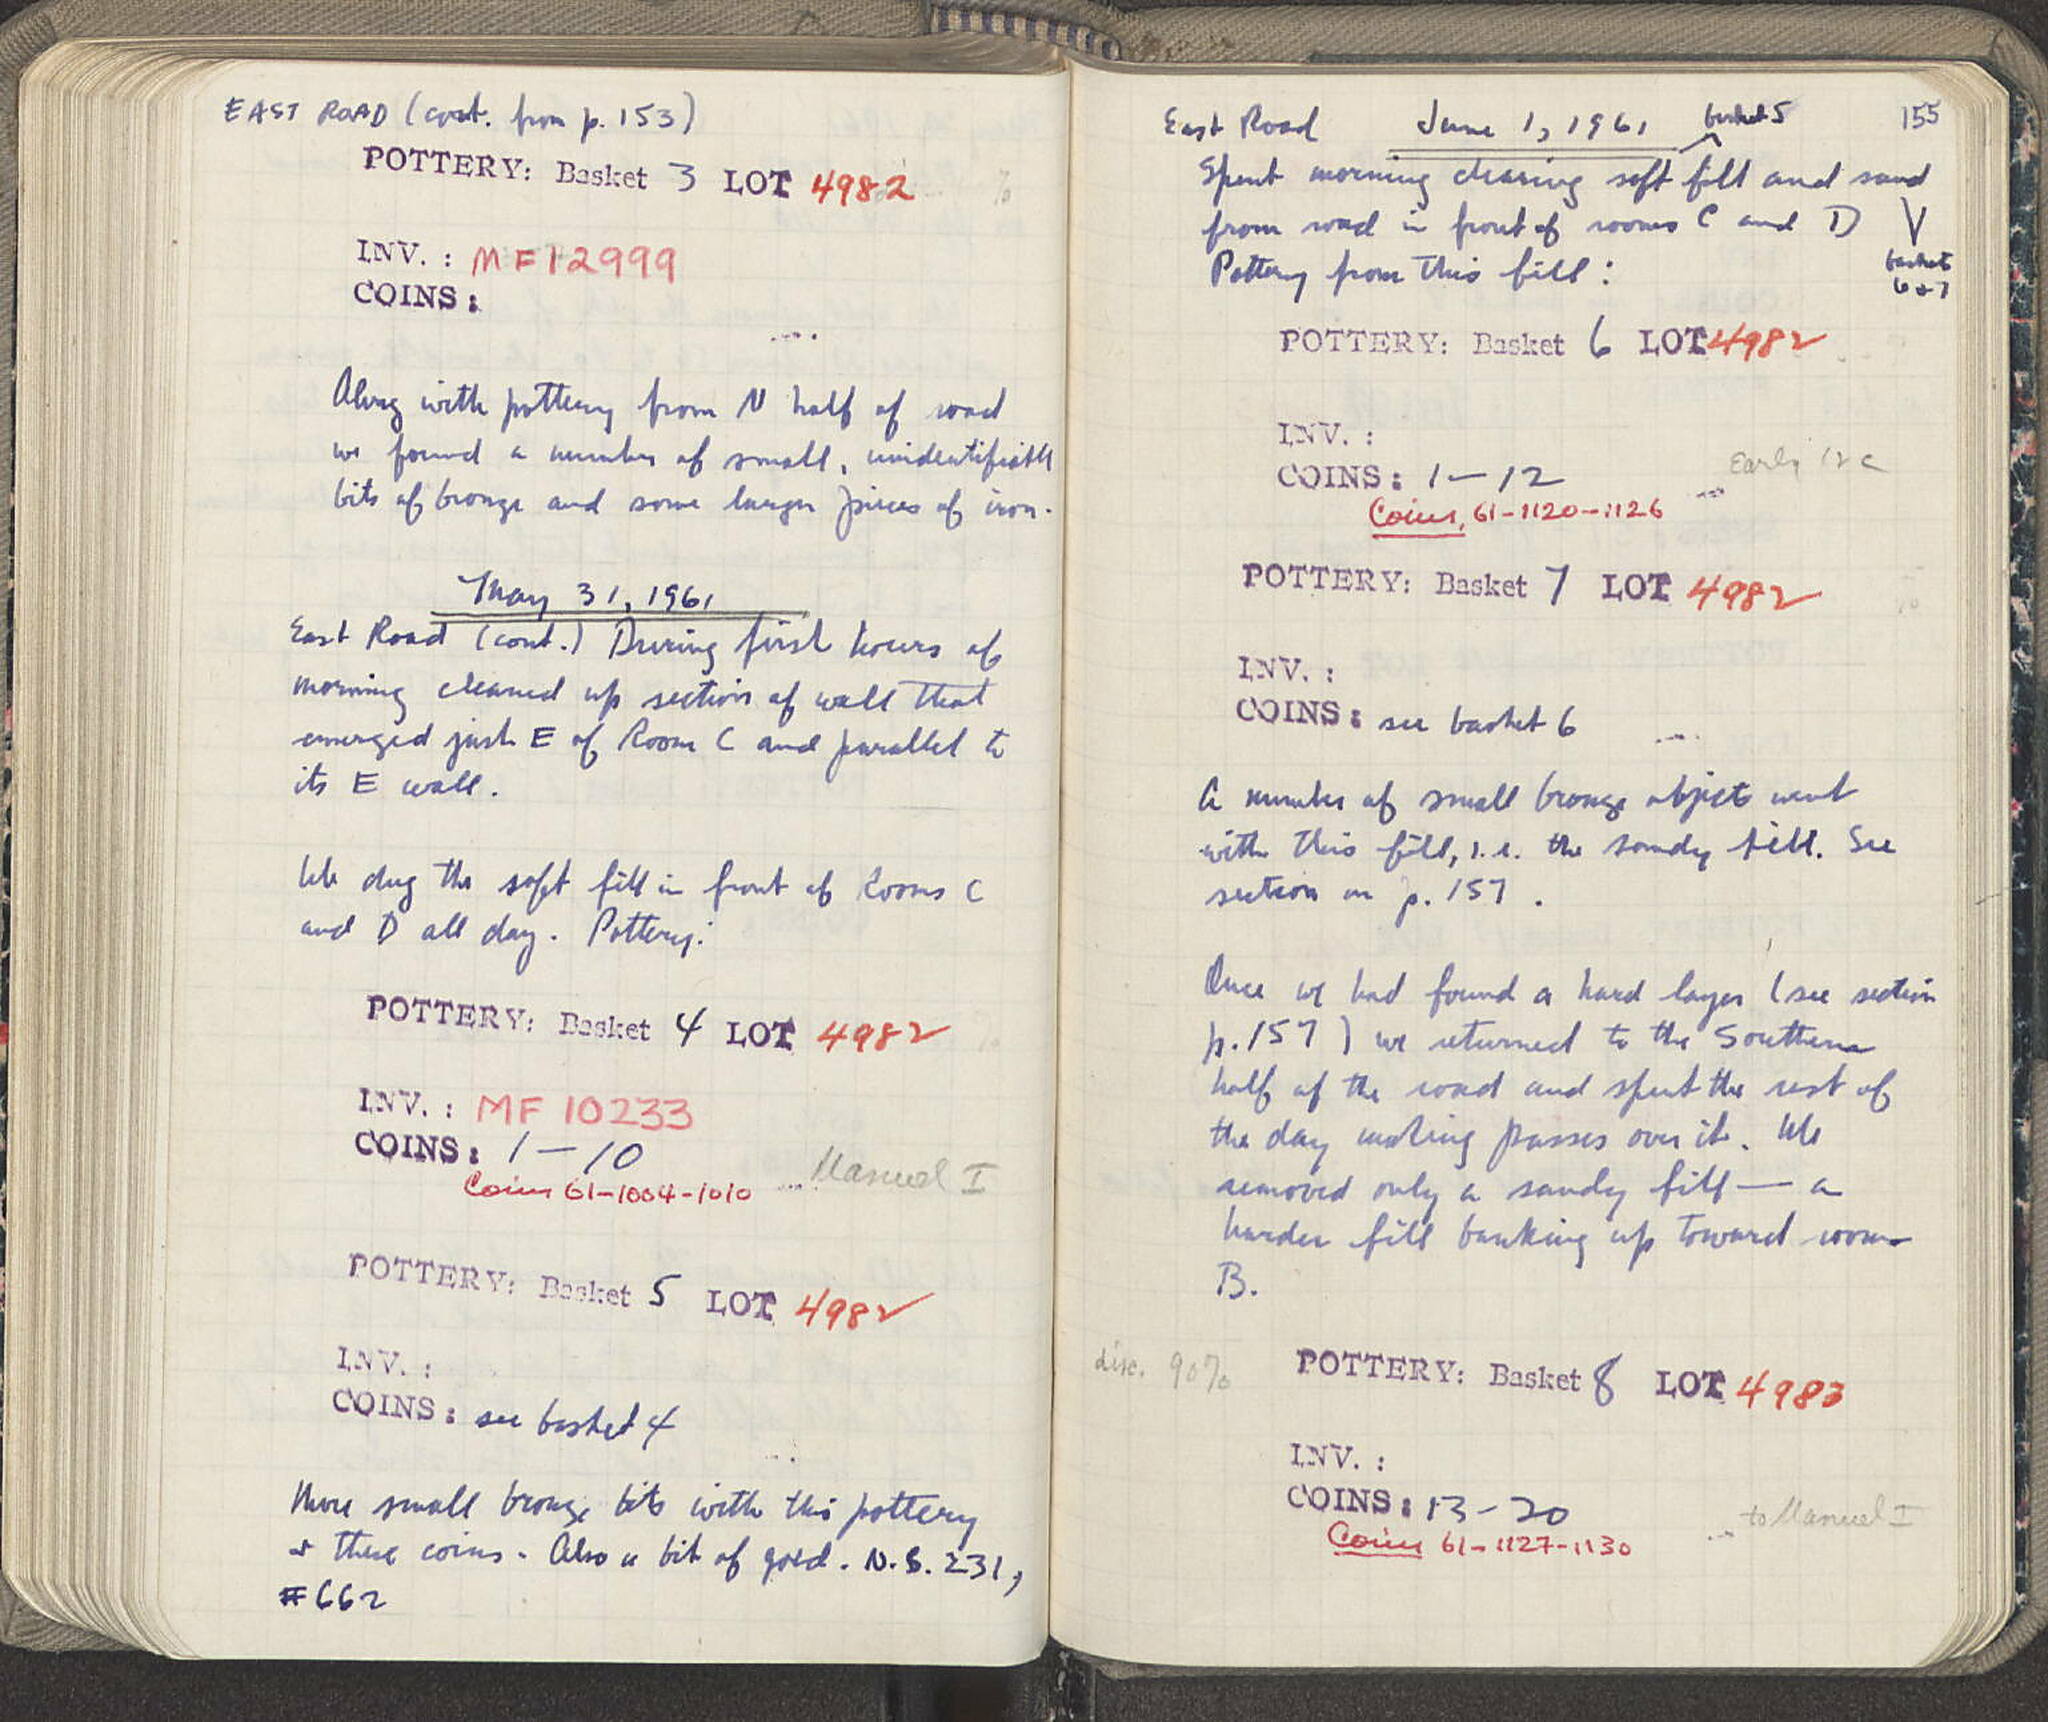 EAST ROAD (cont. from p. 153)
POTTERY: Basket 3 LOT 4982
INV. : MF12999
COINS:
Along with pottery from N half of road
we found a number of small, unidentifiable
bits of bronze and some larger pieces of iron.
May 31, 1961
East Road (cont.) During first hours of
morning cleaned up section of wall that
emerged just E of Room C and parallel to
its E wall.
We dug the soft fill in front of Rooms C
and D all day. Pottery:
POTTERY: Basket 4 LOT 4982
INV. : MF 10233
COINS: 1-10
Coins 61-1004-1010
Manuel I
POTTERY: Basket 5 LOT 4982
INV. :
COINS: see basket 4
More small bronze bits with this pottery
+ these coins. Also a bit of gold. N.B. 231,
#662
155
East Road June 1, 1961 basket 5
Spent morning clearing soft fill and sand
from road in front of rooms C and D
Pottery from this fill:
baskets
6+7
POTTERY: Basket 6 LOT 4982
INV. :
COINS: 1-12
Early 12 c
Coins, 61-1120-1126
POTTERY: Basket 7 LOT 4982
INV. :
COINS: see basket 6
A number of small bronze objects went
with this fill, i.e. the sandy fill. See
section on p. 157.
Once we had found a hard layer (see section
p. 157) we returned to the Southern
half of the road and spent the rest of
the day making passes over it. We
removed only a sandy fill — a
harder fill banking up toward room
B.
disc. 90%
POTTERY: Basket 8 LOT 4983
INV. :
COINS: 13-20
to Manuel I
Coins 61-1127-1130